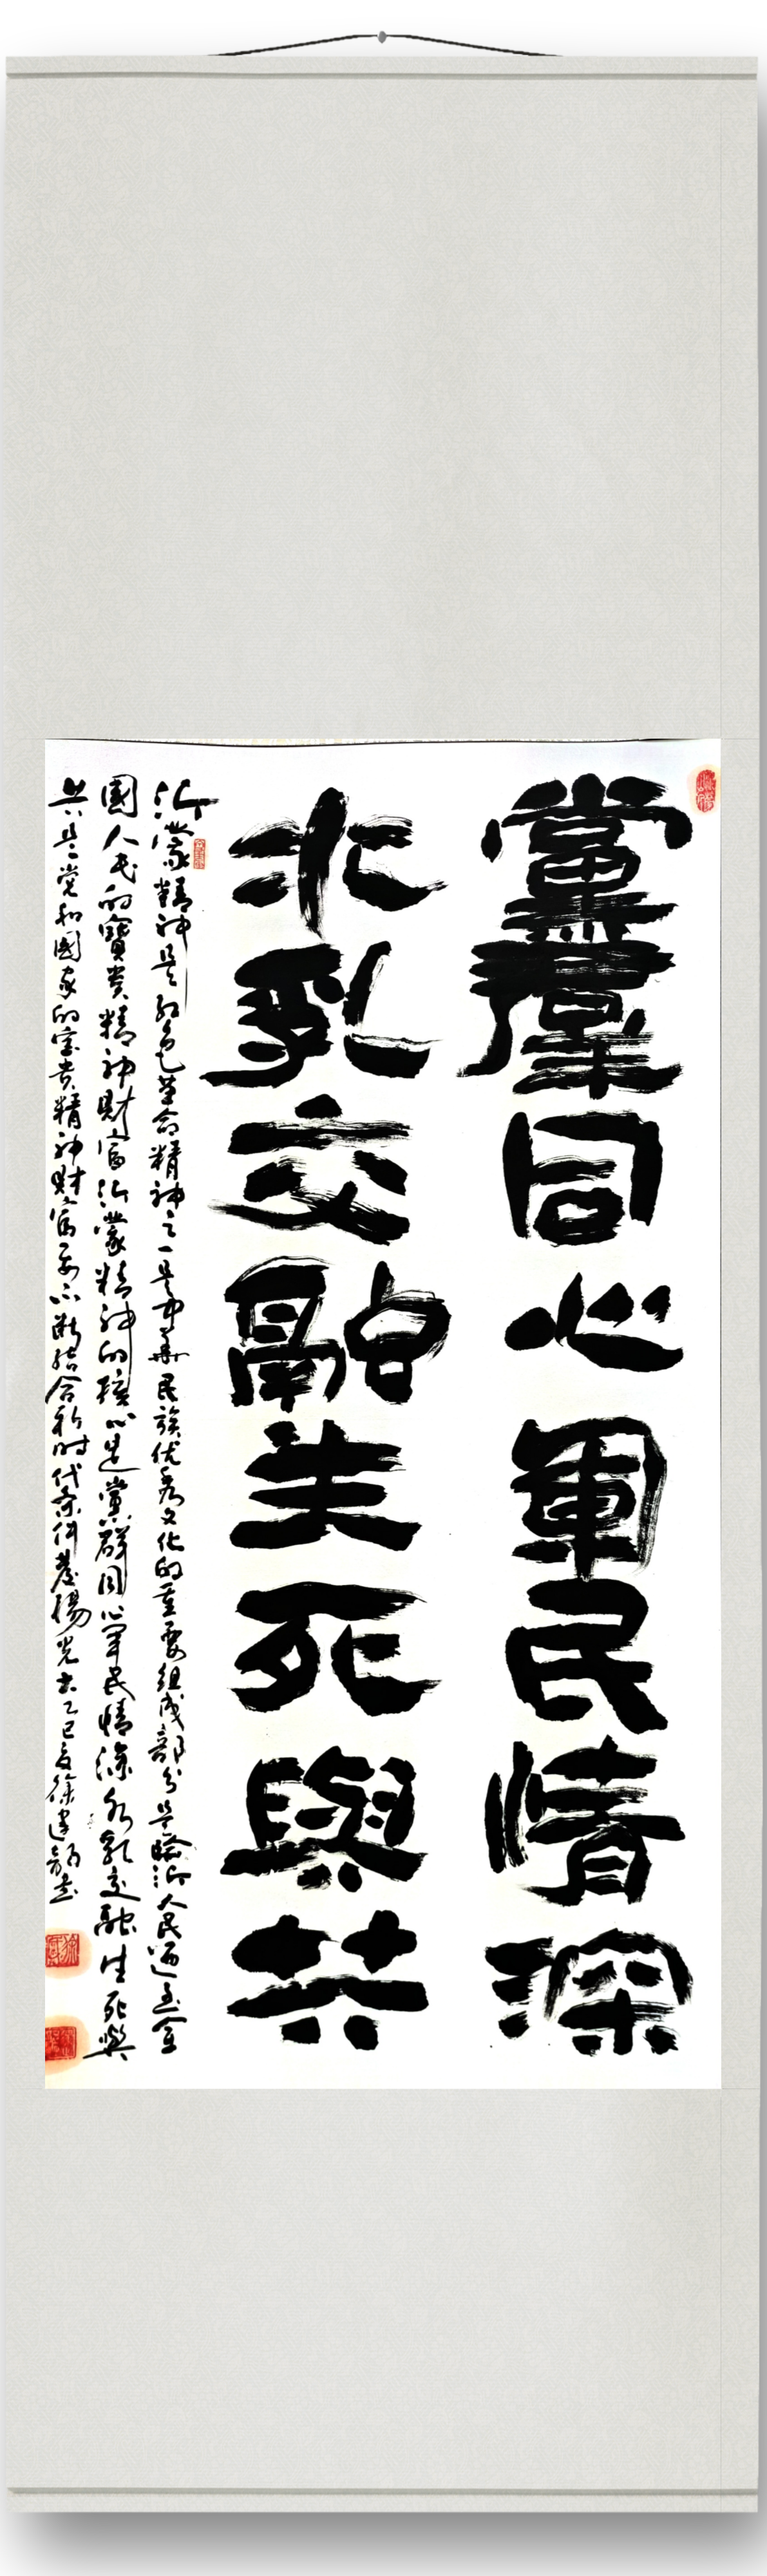 黨羣同心軍民情深
水乳交融生死與共
沂蒙精神是红色革命精神之一是中華民族优秀文化的重要组成部分是臨沂人民過至全
國人民的寶贵精神财富沂蒙精神的核心是黨群同心军民情深水乳交融生死與
共是党和國家的宝贵精神财富要不断结合新时代条件發揚光大乙巳夏徐建